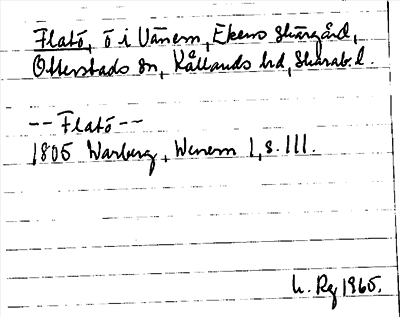 Flatö, ö i Vänern, Ekens skärgård,
Otterstads sn, Kållands hd, Skarab.l.
-- Flatö --
1805 Warberg, Wenern 1, s. 111.
L. Rg 1965.